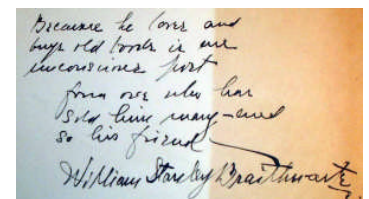 Because he loves and
buys old books is an
unconscious poet
from one who has
sold him many – and
so his friend
William Stanley Braithwaite